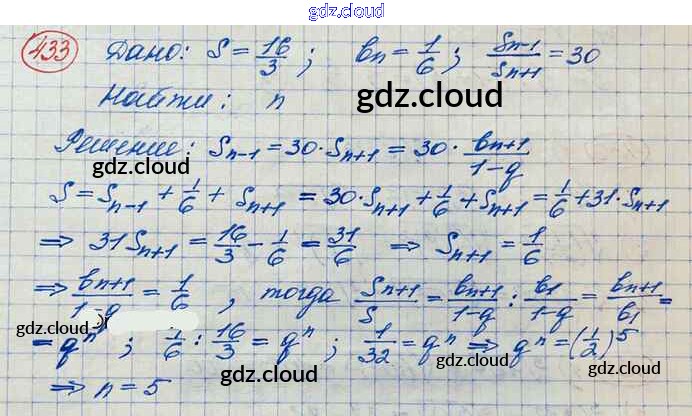 gdz.cloud
433 Дано: S = 16/3 ; bn = 1/6 ; Sn-1/Sn+1 = 30
Найти: n
gdz.cloud
Решение: Sn-1 = 30·Sn+1 = 30· bn+1/1-q
gdz.cloud
S = Sn-1 + 1/6 + Sn+1 = 30·Sn+1 + 1/6 + Sn+1 = 1/6 + 31·Sn+1
⇒ 31Sn+1 = 16/3 - 1/6 = 31/6 ⇒ Sn+1 = 1/6
⇒ bn+1/1-q = 1/6 , тогда Sn+1/S = bn+1/1-q : b1/1-q = bn+1/b1 =
gdz.cloud
gdz.cloud
= qⁿ ; 1/6 : 16/3 = qⁿ ; 1/32 = qⁿ ⇒ qⁿ = (1/2)⁵
gdz.cloud
gdz.cloud
⇒ n = 5